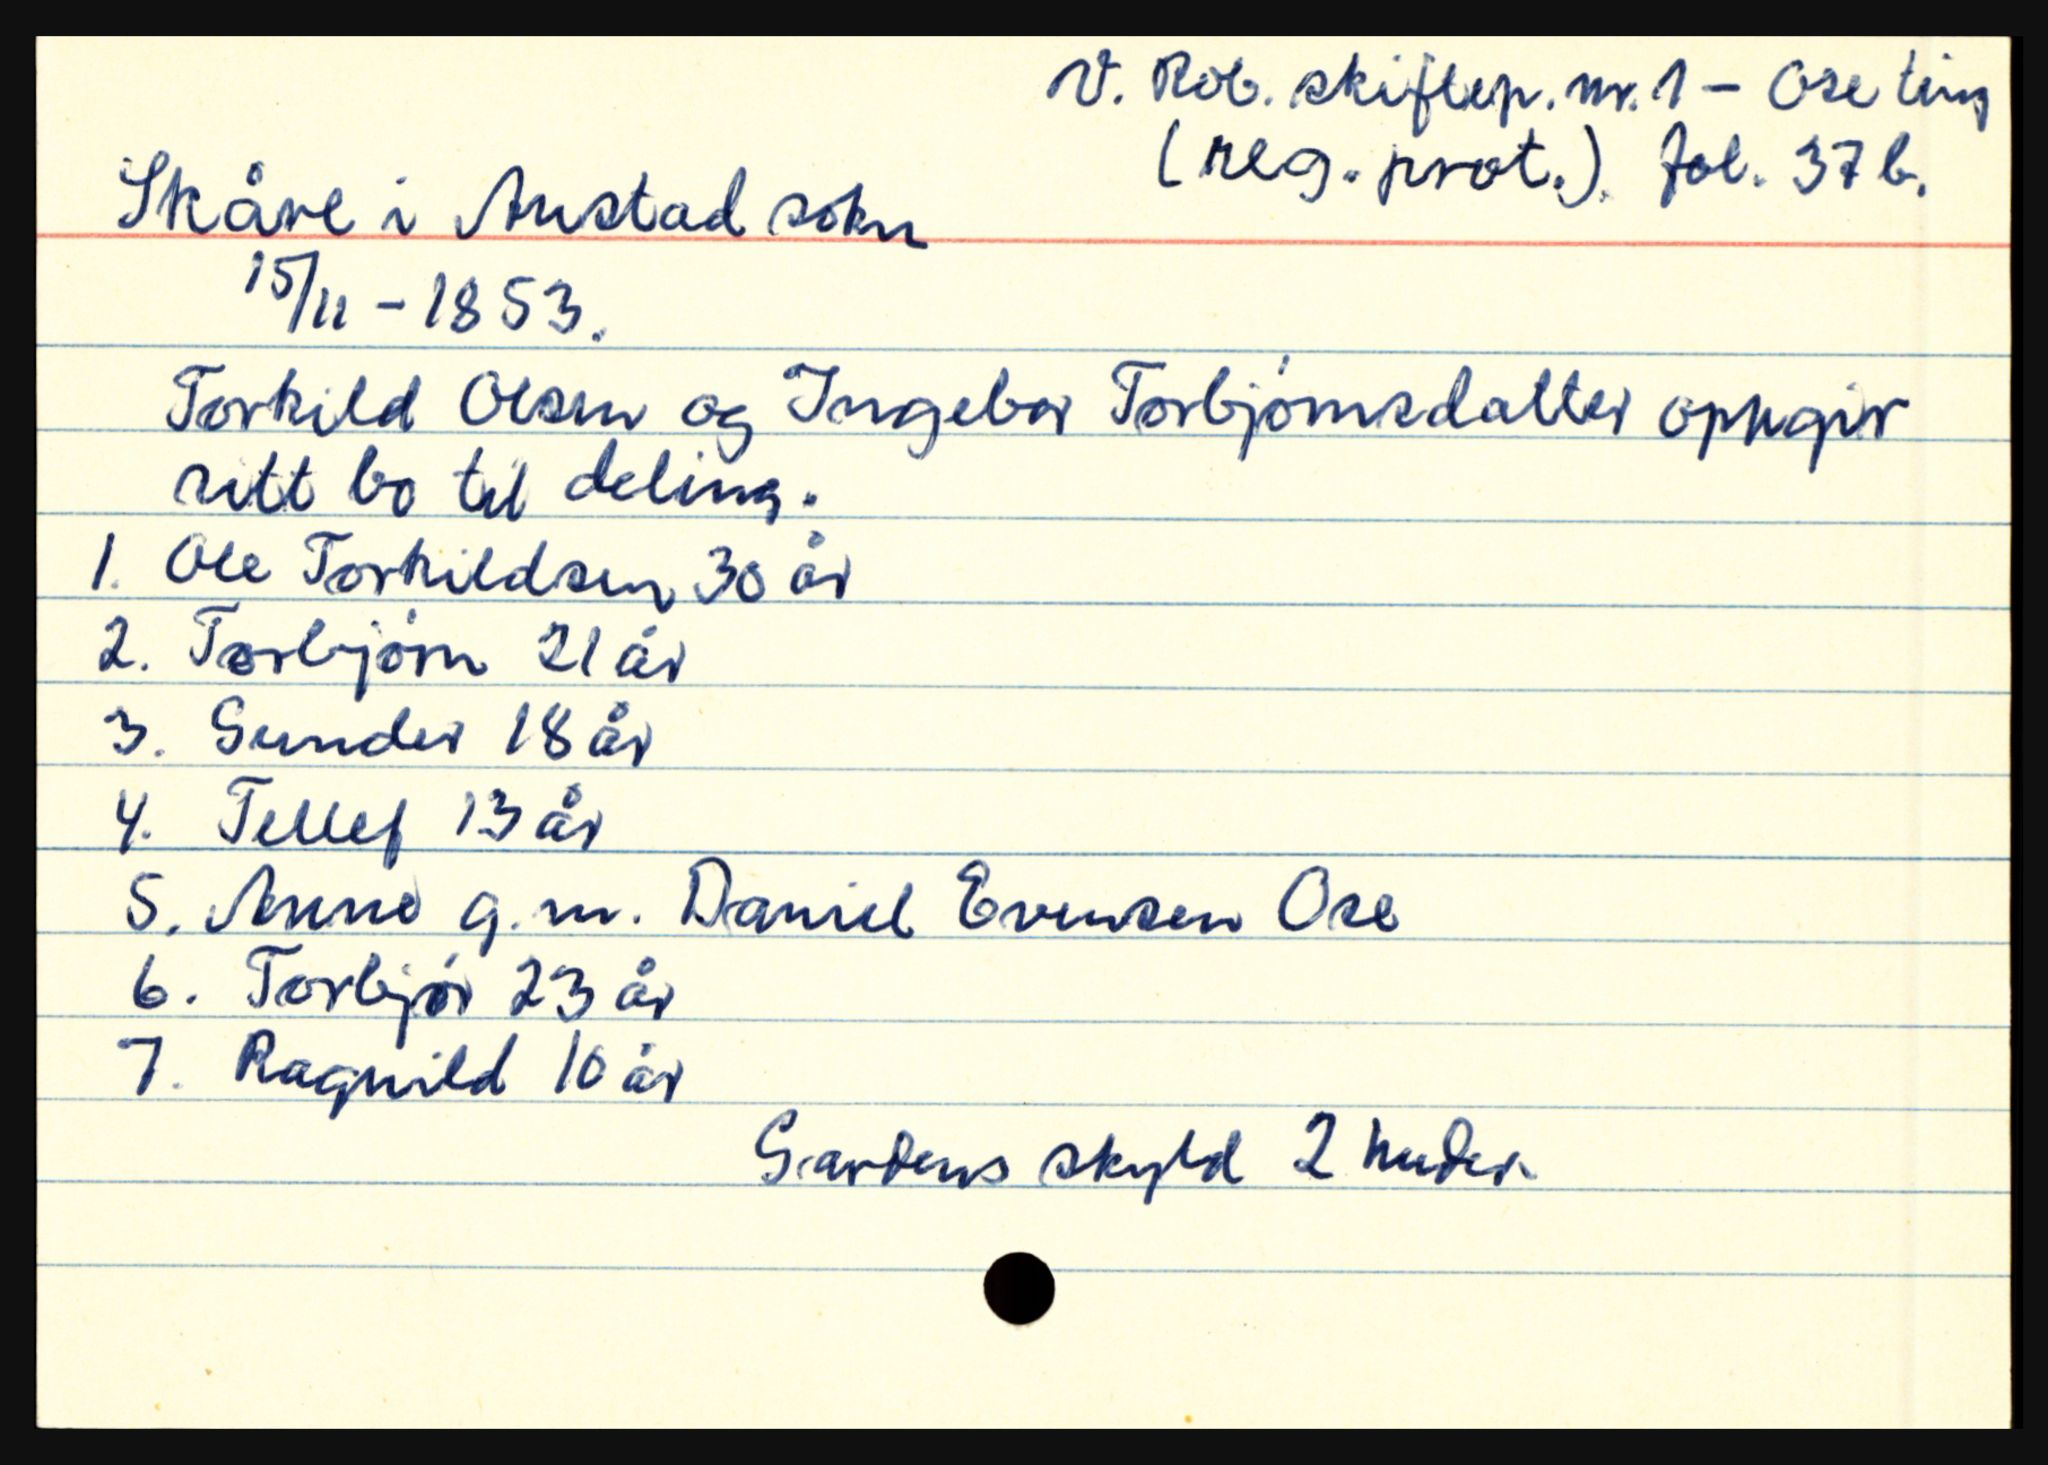 V. Rob. skiftep. nr. 1 – Ose ting
(reg. prot.). fol. 37 b.
Skåre i Austad sokn
15/11 – 1853.
Torkild Olsen og Ingebor Torbjørnsdatter oppgir
sitt bo til deling.
1. Ole Torkildsen 30 år
2. Torbjørn 21 år
3. Gunder 18 år
4. Tellef 13 år
5. Anne g.m. Daniel Evensen Ose
6. Torbjør 23 år
7. Ragnild 10 år
Gardens skyld 2 huder.